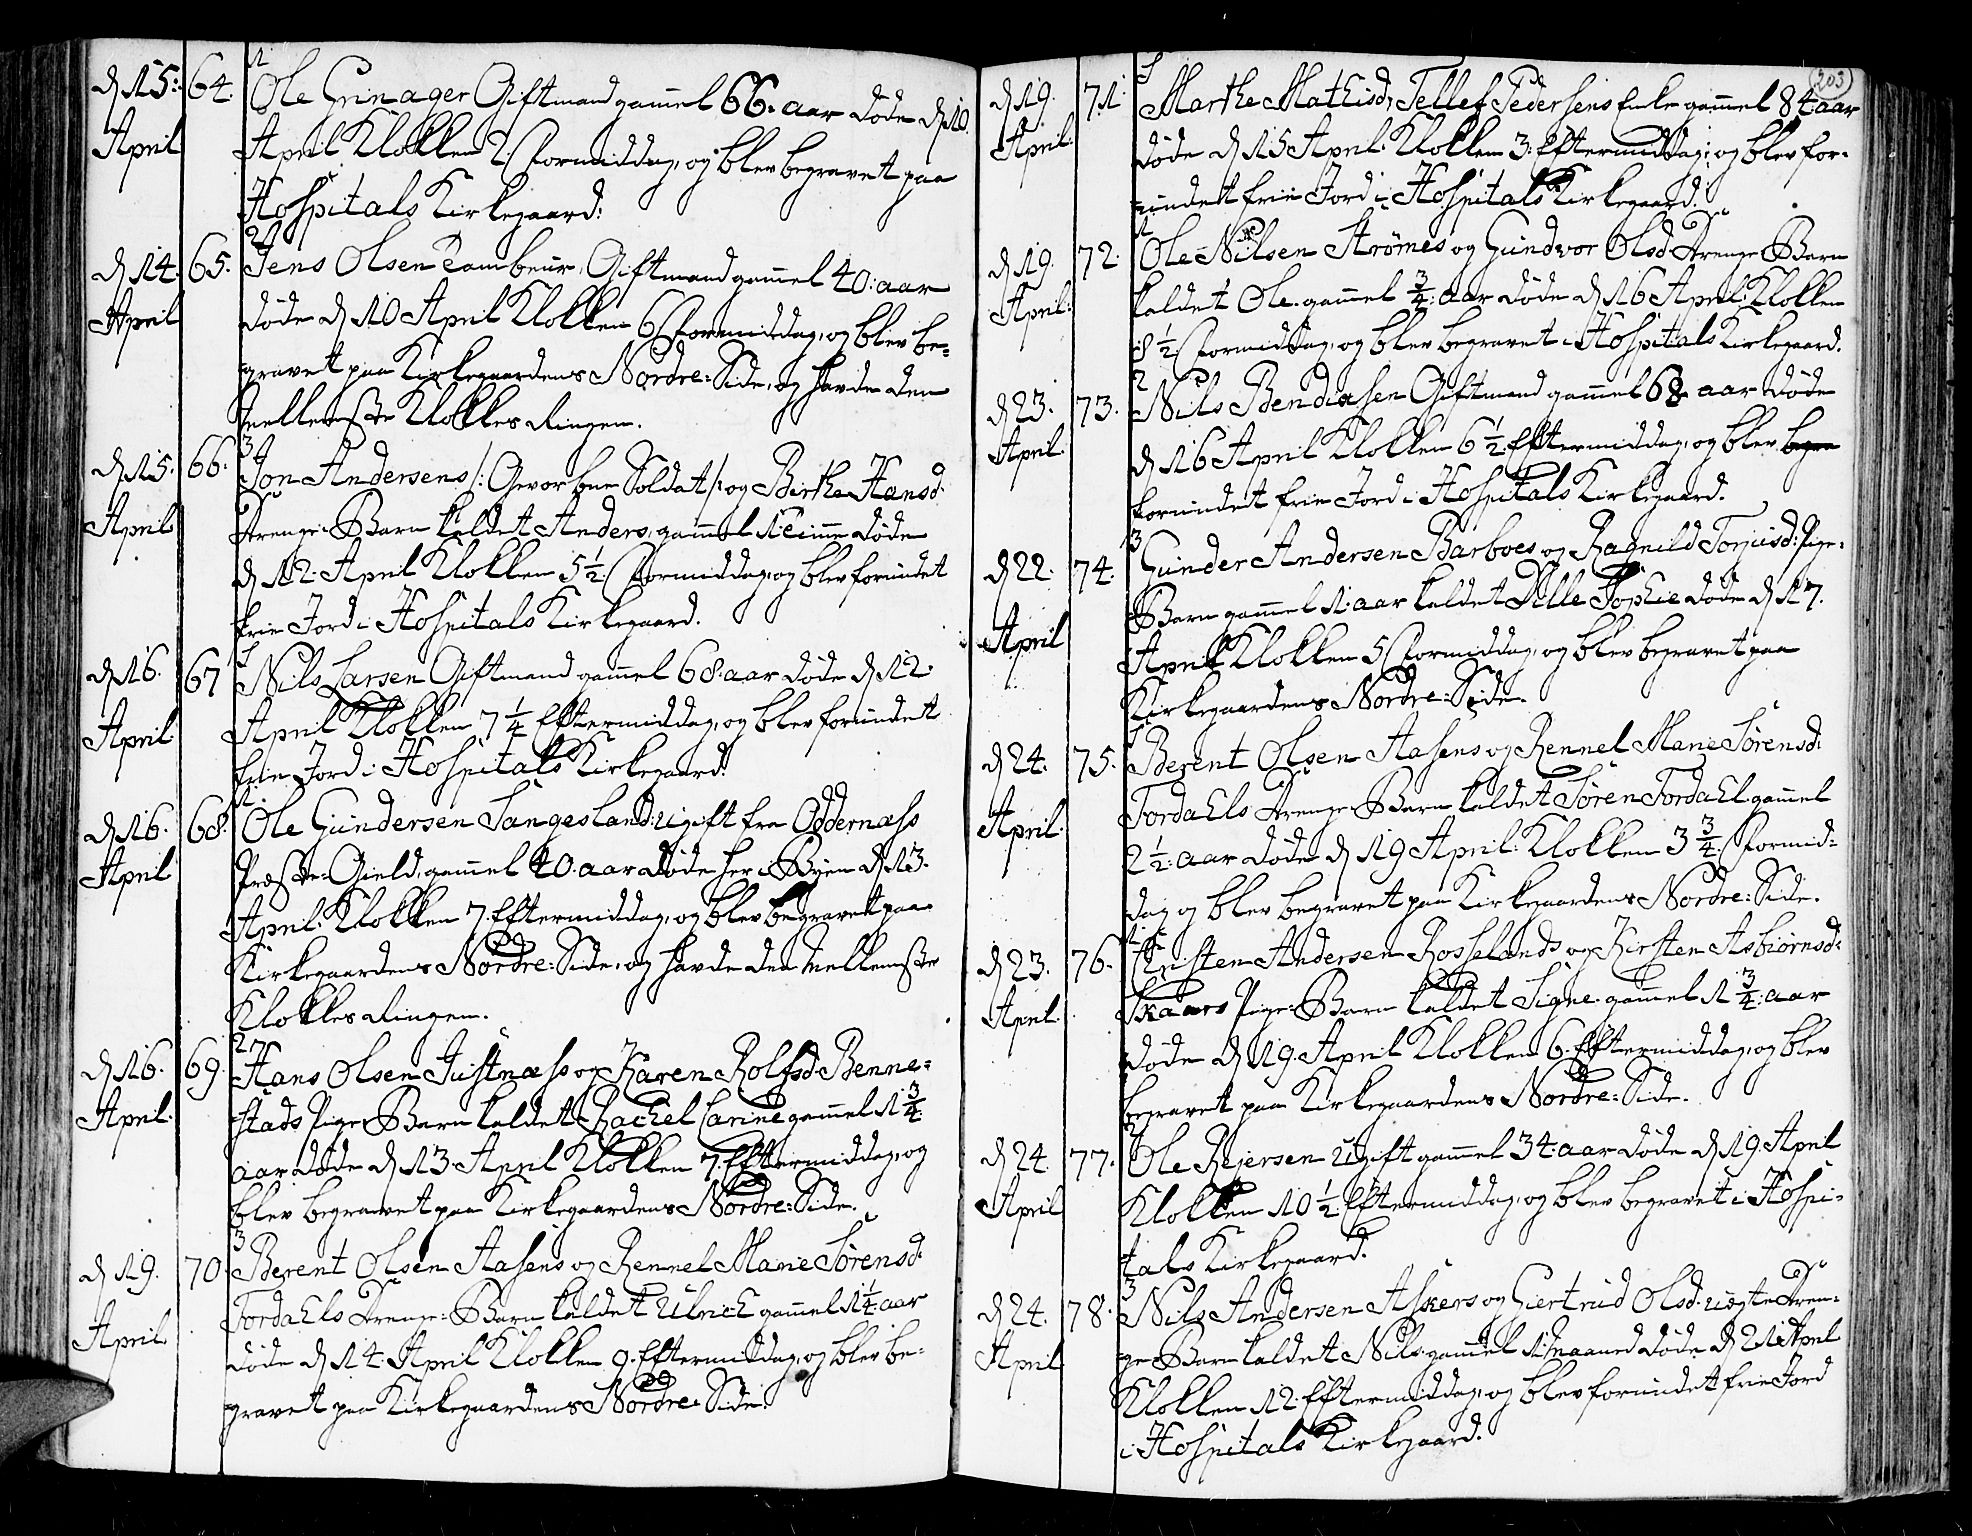 d 15: 64. 1
Ole Grinager Giftmand gammel 66. aar døde d 10.
April April Klokken 2 Formiddag, og blev begravet paa
Hospitals Kirkegaard:
d 14. 65. 2
Jens Olsen Tambeur, Giftmand gammel 40: aar
April døde d 10 April Klokken 6 Formiddag, og blev be-
gravet paa Kirkegaardens Nordre: Side, og havde den
Mellemste Klokkes Ringen.
d 15. 66. 3
Jon Andersens /: Gevorben Soldat /: og Birthe Hansd.
April Drenge: Barn kaldet Anders, gammel 1 Time døde
d 12. April Klokken 5 1/2. Formiddag, og blev forundet
frie Jord i Hospitals Kirkegaard.
d 16. 67
Nils Larsen Giftmand gammel 68. aar døde d 12.
April April Klokken 7 1/4 Eftermiddag, og blev forundet
frie Jord i Hospitals Kirkegaard:
d 16. 68. 1.
Ole Gundersen Sangesland: ugift fra Oddernæss
April Præste-Gield, gammel 40. aar døde her i Byen d 13.
April. Klokken 7. Eftermiddag, og blev begravet paa
Kirkegaardens Nordre: Side, og havde den Mellemste
Klokkes Ringen.
d 16. 69. 2
Hans Olsen Justnæss og Karen Rolfsd. Benne=
April. stads Pige: Barn kaldet Rachel Carine gammel 1 3/4.
aar døde d 13. April Klokken 7. Eftermiddag, og
blev begravet paa Kirkegaardens Nordre: Side.
d 19. 70. 3
Berent Olsen Aasens og Rennel Marie Sørensd:
April. Tordahls Drenge: Barn kaldet Ulrich gammel 1 1/4. aar
døde d 14. April Klokken 9. Eftermiddag, og blev be-
gravet paa Kirkegaardens Nordre: Side.
203
d 19. 71.
Marthe Mathisd, Tellef Pedersens Enke gammel 84 aar
April. døde d 15 April. Klokken 3. Eftermiddag, og blev for-
undet frie Jord i Hospitals Kirkegaard.
d 19. 72. 1
Ole Nilsen Strømes og Gundvor Olsd. Drenge: Barn
April: kaldet Ole. gammel 3/4. aar døde d 16 April. Klokken
8 1/2 Formiddag, og blev begravet i Hospitals Kirkegaard.
d 23. 73. 2
Nils Bendixsen Giftmand gammel 68 aar døde
April. d 16 April Klokken 6 1/2. Eftermiddag, og blev begra
forundet frie Jord i Hospitals Kirkegaard.
d 22. 74. 3
Gunder Andersen Barboes og Ragnild Torjusd: Pige:
April Barn gammel 1. aar kaldet Sille Sophie døde d 17.
April Klokken 5 Formiddag, og blev begravet paa
Kirkegaardens Nordre: Side.
d 24. 75.
Berent Olsen Aasens og Rennel Marie Sørensd:
April. Tordahls Drenge: Barn kaldet Søren Tordahl gammel
2 1/2. aar døde d 19 April. Klokken 3 3/4. Formid:
dag og blev begravet paa Kirkegaardens Nordre: Side.
d 23. 76. 1.
Christen Andersen Rosselands og Kirsten Asbiørnsd:
April. Skaars Pige: Barn kaldet Signe. gammel 1 3/4. aar
døde d 19. April Klokken 6. Eftermiddag, og blev
begravet paa Kirkegaardens Nordre: Side.
d 24. 77. 2
Ole Rejersen Ugift gammel 34. aar døde d 19. April
April Klokken 10 1/2. Eftermiddag, og blev begravet i Hospi-
tals Kirkegaard.
d 24. 78. 3
Nils Andersen Askers og Giertrud Olsd. uægte Dren-
April. ge Barn kaldet Nils gammel 1. Maaned døde d 21 April
Klokken 12. Eftermiddag, og blev forundet frie Jord
i Hospitals Kirkegaard.